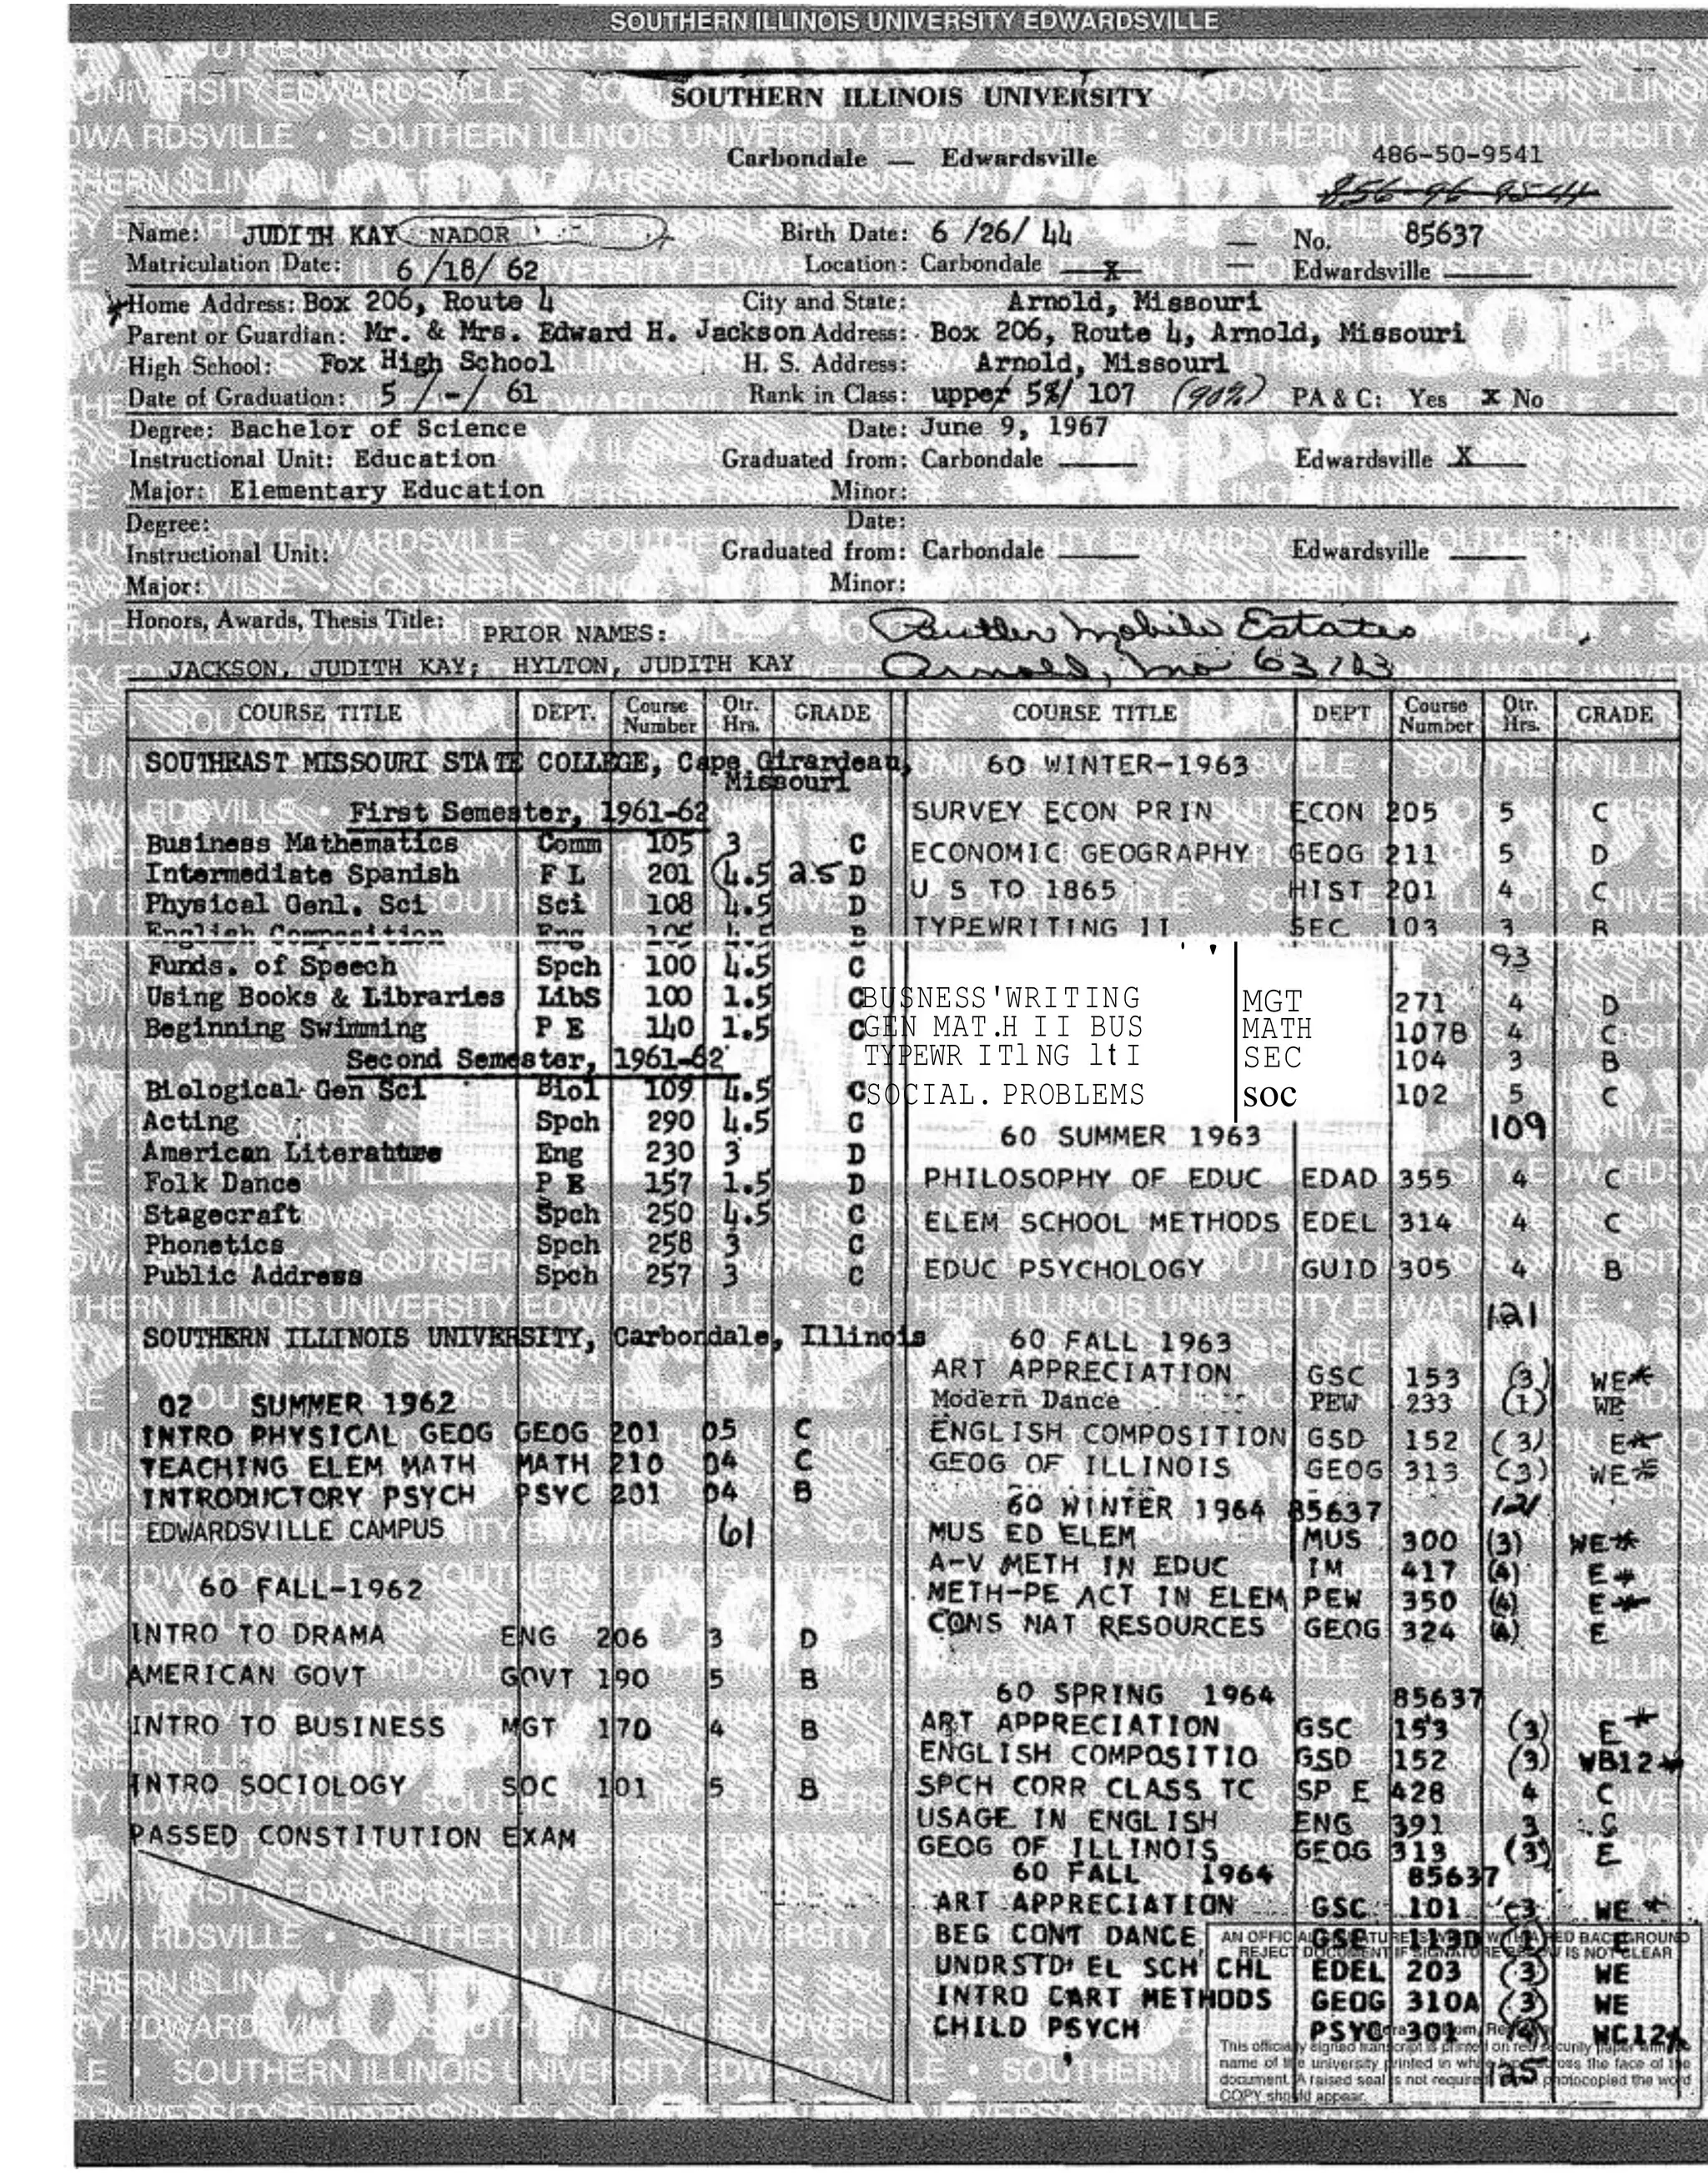 SOUTHERN ILLINOIS UNIVERSITY EDWARDSVILLE
SOUTHERN ILLINOIS UNIVERSITY
Carbondale — Edwardsville
486-50-9541
Name: JUDITH KAY NADOR Birth Date: 6 /26/ 44 No. 85637
Matriculation Date: 6 /18/ 62 Location: Carbondale X Edwardsville
Home Address: Box 206, Route 4 City and State: Arnold, Missouri
Parent or Guardian: Mr. & Mrs. Edward H. Jackson Address: Box 206, Route 4, Arnold, Missouri
High School: Fox High School H. S. Address: Arnold, Missouri
Date of Graduation: 5 /-/ 61 Rank in Class: upper 5%/ 107 (90%) PA & C: Yes X No
Degree: Bachelor of Science Date: June 9, 1967
Instructional Unit: Education Graduated from: Carbondale Edwardsville X
Major: Elementary Education Minor:
Degree: Date:
Instructional Unit: Graduated from: Carbondale Edwardsville
Major: Minor:
Honors, Awards, Thesis Title: PRIOR NAMES: Butler Mobile Estates
JACKSON, JUDITH KAY; HYLTON, JUDITH KAY Arnold, Mo
COURSE TITLE DEPT. Course Number Qtr. Hrs. GRADE
SOUTHEAST MISSOURI STATE COLLEGE, Cape Girardeau,
Missouri
First Semester, 1961-62
Business Mathematics Comm 105 3 C
Intermediate Spanish F L 201 (4.5 2.5 D
Physical Genl. Sci Sci 108 4.5 D
English Composition Eng
Funds. of Speech Spch 100 4.5 C
Using Books & Libraries LibS 100 1.5 C
Beginning Swimming P E 140 1.5 C
Second Semester, 1961-62
Biological Gen Sci Biol 109 4.5 C
Acting Spch 290 4.5 C
American Literature Eng 230 3 D
Folk Dance P E 157 1.5 D
Stagecraft Spch 250 4.5 C
Phonetics Spch 258 3 C
Public Address Spch 257 3 C
SOUTHERN ILLINOIS UNIVERSITY, Carbondale, Illinois
02 SUMMER 1962
INTRO PHYSICAL GEOG GEOG 201 05 C
TEACHING ELEM MATH MATH 210 04 C
INTRODUCTORY PSYCH PSYC 201 04 B
EDWARDSVILLE CAMPUS 61
60 FALL-1962
INTRO TO DRAMA ENG 206 3 D
AMERICAN GOVT GOVT 190 5 B
INTRO TO BUSINESS MGT 170 4 B
INTRO SOCIOLOGY SOC 101 5 B
PASSED CONSTITUTION EXAM
COURSE TITLE DEPT Course Number Qtr. Hrs. GRADE
60 WINTER-1963
SURVEY ECON PRIN ECON 205 5 C
ECONOMIC GEOGRAPHY GEOG 211 5 D
U S TO 1865 HIST 201 4 C
TYPEWRITING II SEC 103 3 B
93
BUSNESS'WRITING MGT 271 4 D
GEN MAT.H II BUS MATH 107B 4 C
TYPEWR ITlNG lt I SEC 104 3 B
SOCIAL.PROBLEMS soc 102 5 C
109
60 SUMMER 1963
PHILOSOPHY OF EDUC EDAD 355 4 C
ELEM SCHOOL METHODS EDEL 314 4 C
EDUC PSYCHOLOGY GUID 305 4 B
121
60 FALL 1963
ART APPRECIATION GSC 153 (3) WE*
Modern Dance PEW 233 (1) WE
ENGLISH COMPOSITION GSD 152 (3) E*
GEOG OF ILLINOIS GEOG 313 (3) WE*
60 WINTER 1964 85637 121
MUS ED ELEM MUS 300 (3) WE*
A-V METH IN EDUC IM 417 (4) E*
METH-PE ACT IN ELEM PEW 350 (4) E*
CONS NAT RESOURCES GEOG 324 (4) E
60 SPRING 1964 85637
ART APPRECIATION GSC 153 (3) E*
ENGLISH COMPOSITIO GSD 152 (3) WB12*
SPCH CORR CLASS TC SP E 428 4 C
USAGE IN ENGLISH ENG 391 3 C
GEOG OF ILLINOIS GEOG 313 (3) E
60 FALL 1964 85637
ART APPRECIATION GSC 101 (3 WE *
BEG CONT DANCE GSE 113D E
UNDRSTD EL SCH CHL EDEL 203 (3) WE
INTRO CART METHODS GEOG 310A (3) WE
CHILD PSYCH PSYC 301 (4) WC12*
125
AN OFFICIAL SIGNATURE IS WHITE WITH A RED BACKGROUND
REJECT DOCUMENT IF SIGNATURE BELOW IS NOT CLEAR
This officially signed transcript is printed on red security paper with the
name of the university printed in white type across the face of the
document. A raised seal is not required. When photocopied the word
COPY should appear.